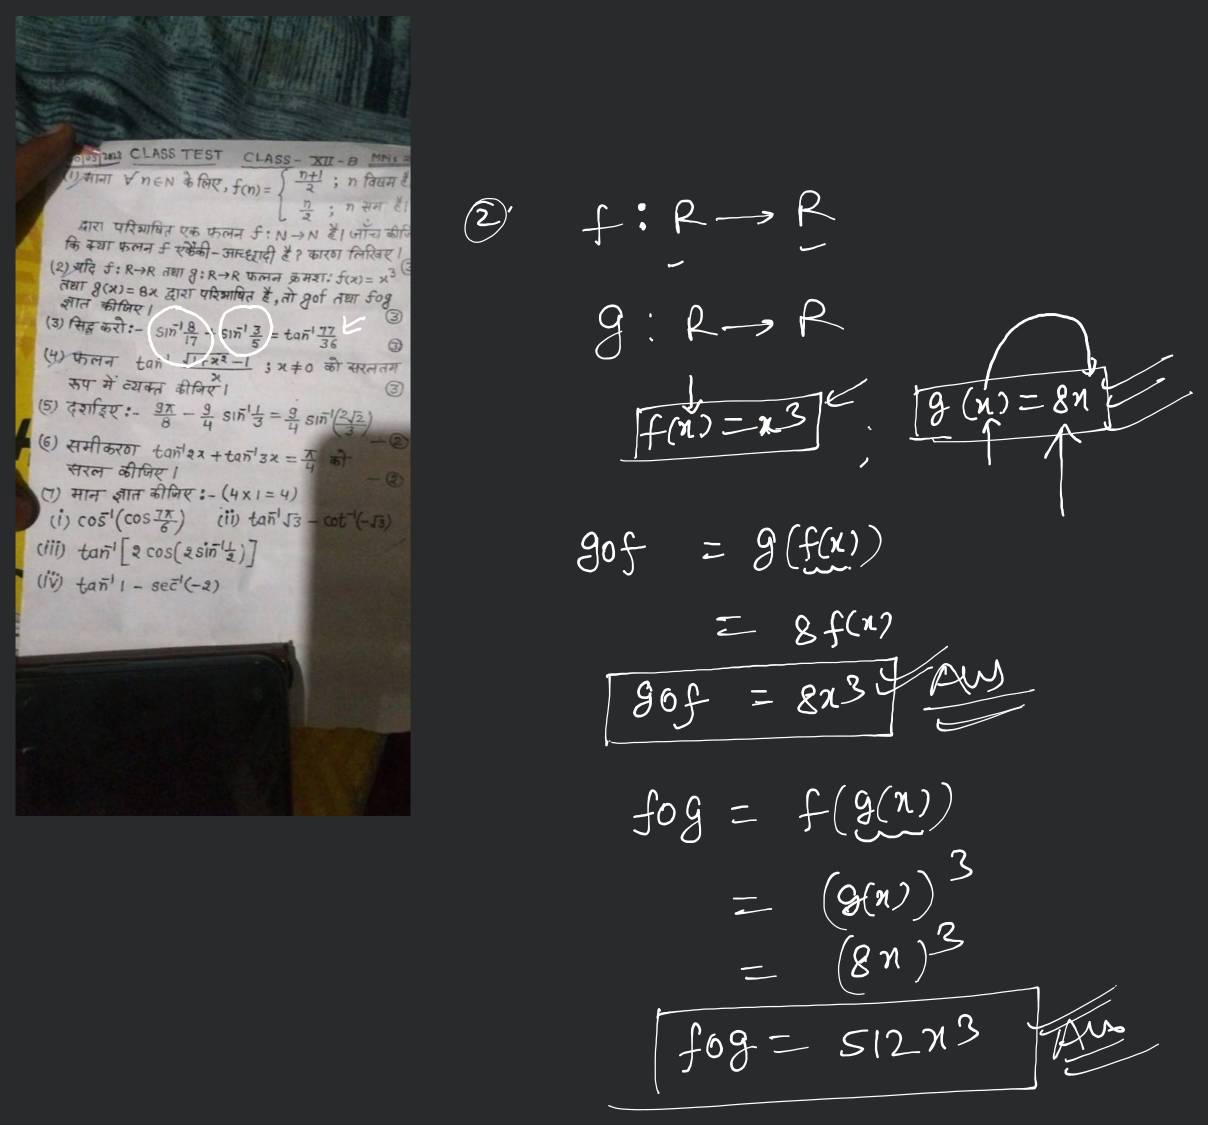 CLASS TEST CLASS - XII - B
(1) माना ∀ n∈N के लिए, f(n) = { n+1/2 ; n विषम है
n/2 ; n सम है।
द्वारा परिभाषित एक फलन f : N→N है। जाँच कीजि
कि क्या फलन f एकैकी-आच्छादी है? कारण लिखिए।
(2) यदि f : R→R तथा g : R→R फलन क्रमशः f(x) = x³
तथा g(x) = 8x द्वारा परिभाषित है, तो gof तथा fog
ज्ञात कीजिए। (3)
(3) सिद्ध करो:- sin⁻¹ 8/17 + sin⁻¹ 3/5 = tan⁻¹ 77/36
(4) फलन tan⁻¹ √1+x² -1/x ; x≠0 को सरलतम
रूप में व्यक्त कीजिए। (3)
(5) दर्शाइए:- 9π/8 - 9/4 sin⁻¹ 1/3 = 9/4 sin⁻¹(2√2/3) - (2)
(6) समीकरण tan⁻¹2x + tan⁻¹3x = π/4 को
सरल कीजिए। - (2)
(7) मान ज्ञात कीजिए:- (4×1=4)
(i) cos⁻¹(cos 7π/6) (ii) tan⁻¹√3 - cot⁻¹(-√3)
(iii) tan⁻¹[2cos(2sin⁻¹ 1/2)]
(iv) tan⁻¹1 - sec⁻¹(-2)
(2) f : R → R
g : R → R
f(x) = x³ ; g(x) = 8x
gof = g(f(x))
= 8f(x)
gof = 8x³ Ans
fog = f(g(x))
= (g(x))³
= (8x)³
fog = 512x³ Ans